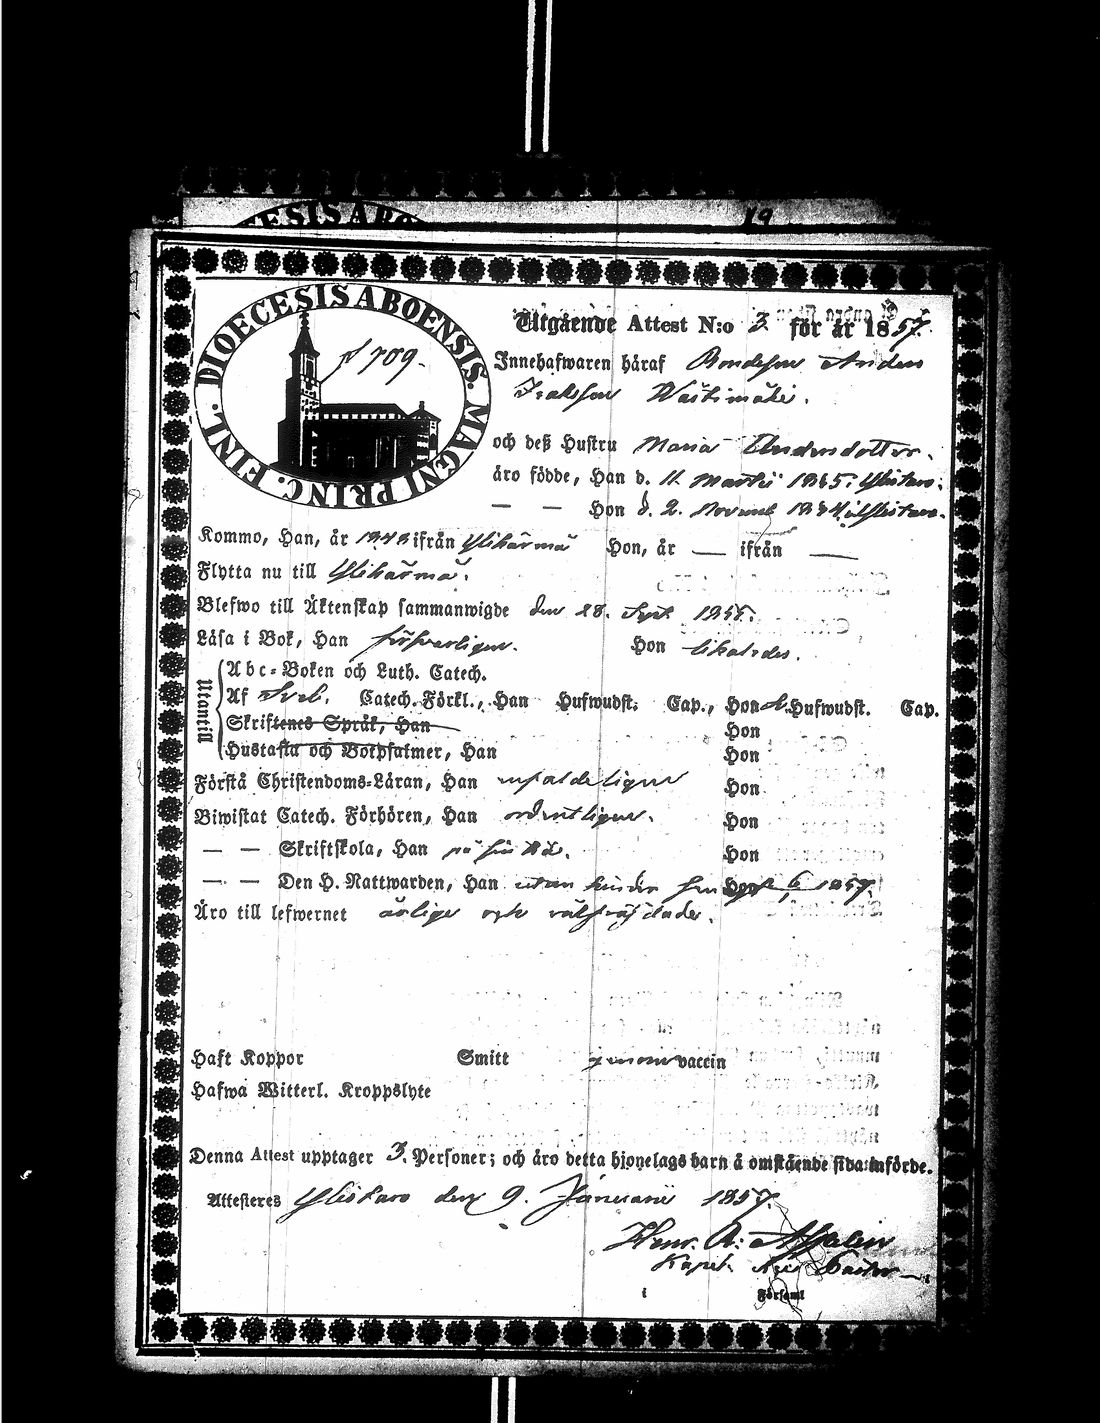 DIOECESIS ABO
19
DIOECESIS ABOENSIS. MAGNI PRINC. FINL.
709.
Utgående Attest N:o 3. för år 1857.
Innehafwaren håraf Bondeson Anders
Isaksson Wästimäki.
och deß Hustru Maria Andersdotter.
åro födde, Han d. 11. Martii Ylistaro.
— — Hon d. 2. Ylistaro.
Kommo, Han, år ifrån Ylihärmä Hon, år — ifrån —
Flytta nu till Ylihärmä.
Blefwo till Åktenskap sammanwigde den 28. Sept. 1855.
Låsa i Bok, Han försvarligen. Hon likaledes.
Utantill
Abc-Boken och Luth. Catech.
Af Sveb. Catech. Förkl., Han Hufwudst. Cap., Hon Hufwudst. Cap.
Skriftenes Språk, Han Hon
Hustafla och Botpsalmer, Han Hon
Förstå Christendoms-Låran, Han Hon
Biwistat Catech. Förhören, Han ordentligen. Hon
— — Skriftskola, Han på sin tid. Hon
— — Den H. Nattwarden, Han utan hinder Hon 6 1857.
Åro till lefwernet ärlige och välfräjdade.
Haft Koppor Smitt genom vaccin
Hafwa Witterl. Kroppslyte
Denna Attest upptager 3. Personer; och åro detta hjonelags barn å omstående sida införde.
Attesteras Ylistaro den 9. Januarii 1857.
Henr. A:
Kapel. Pastor
i Församl